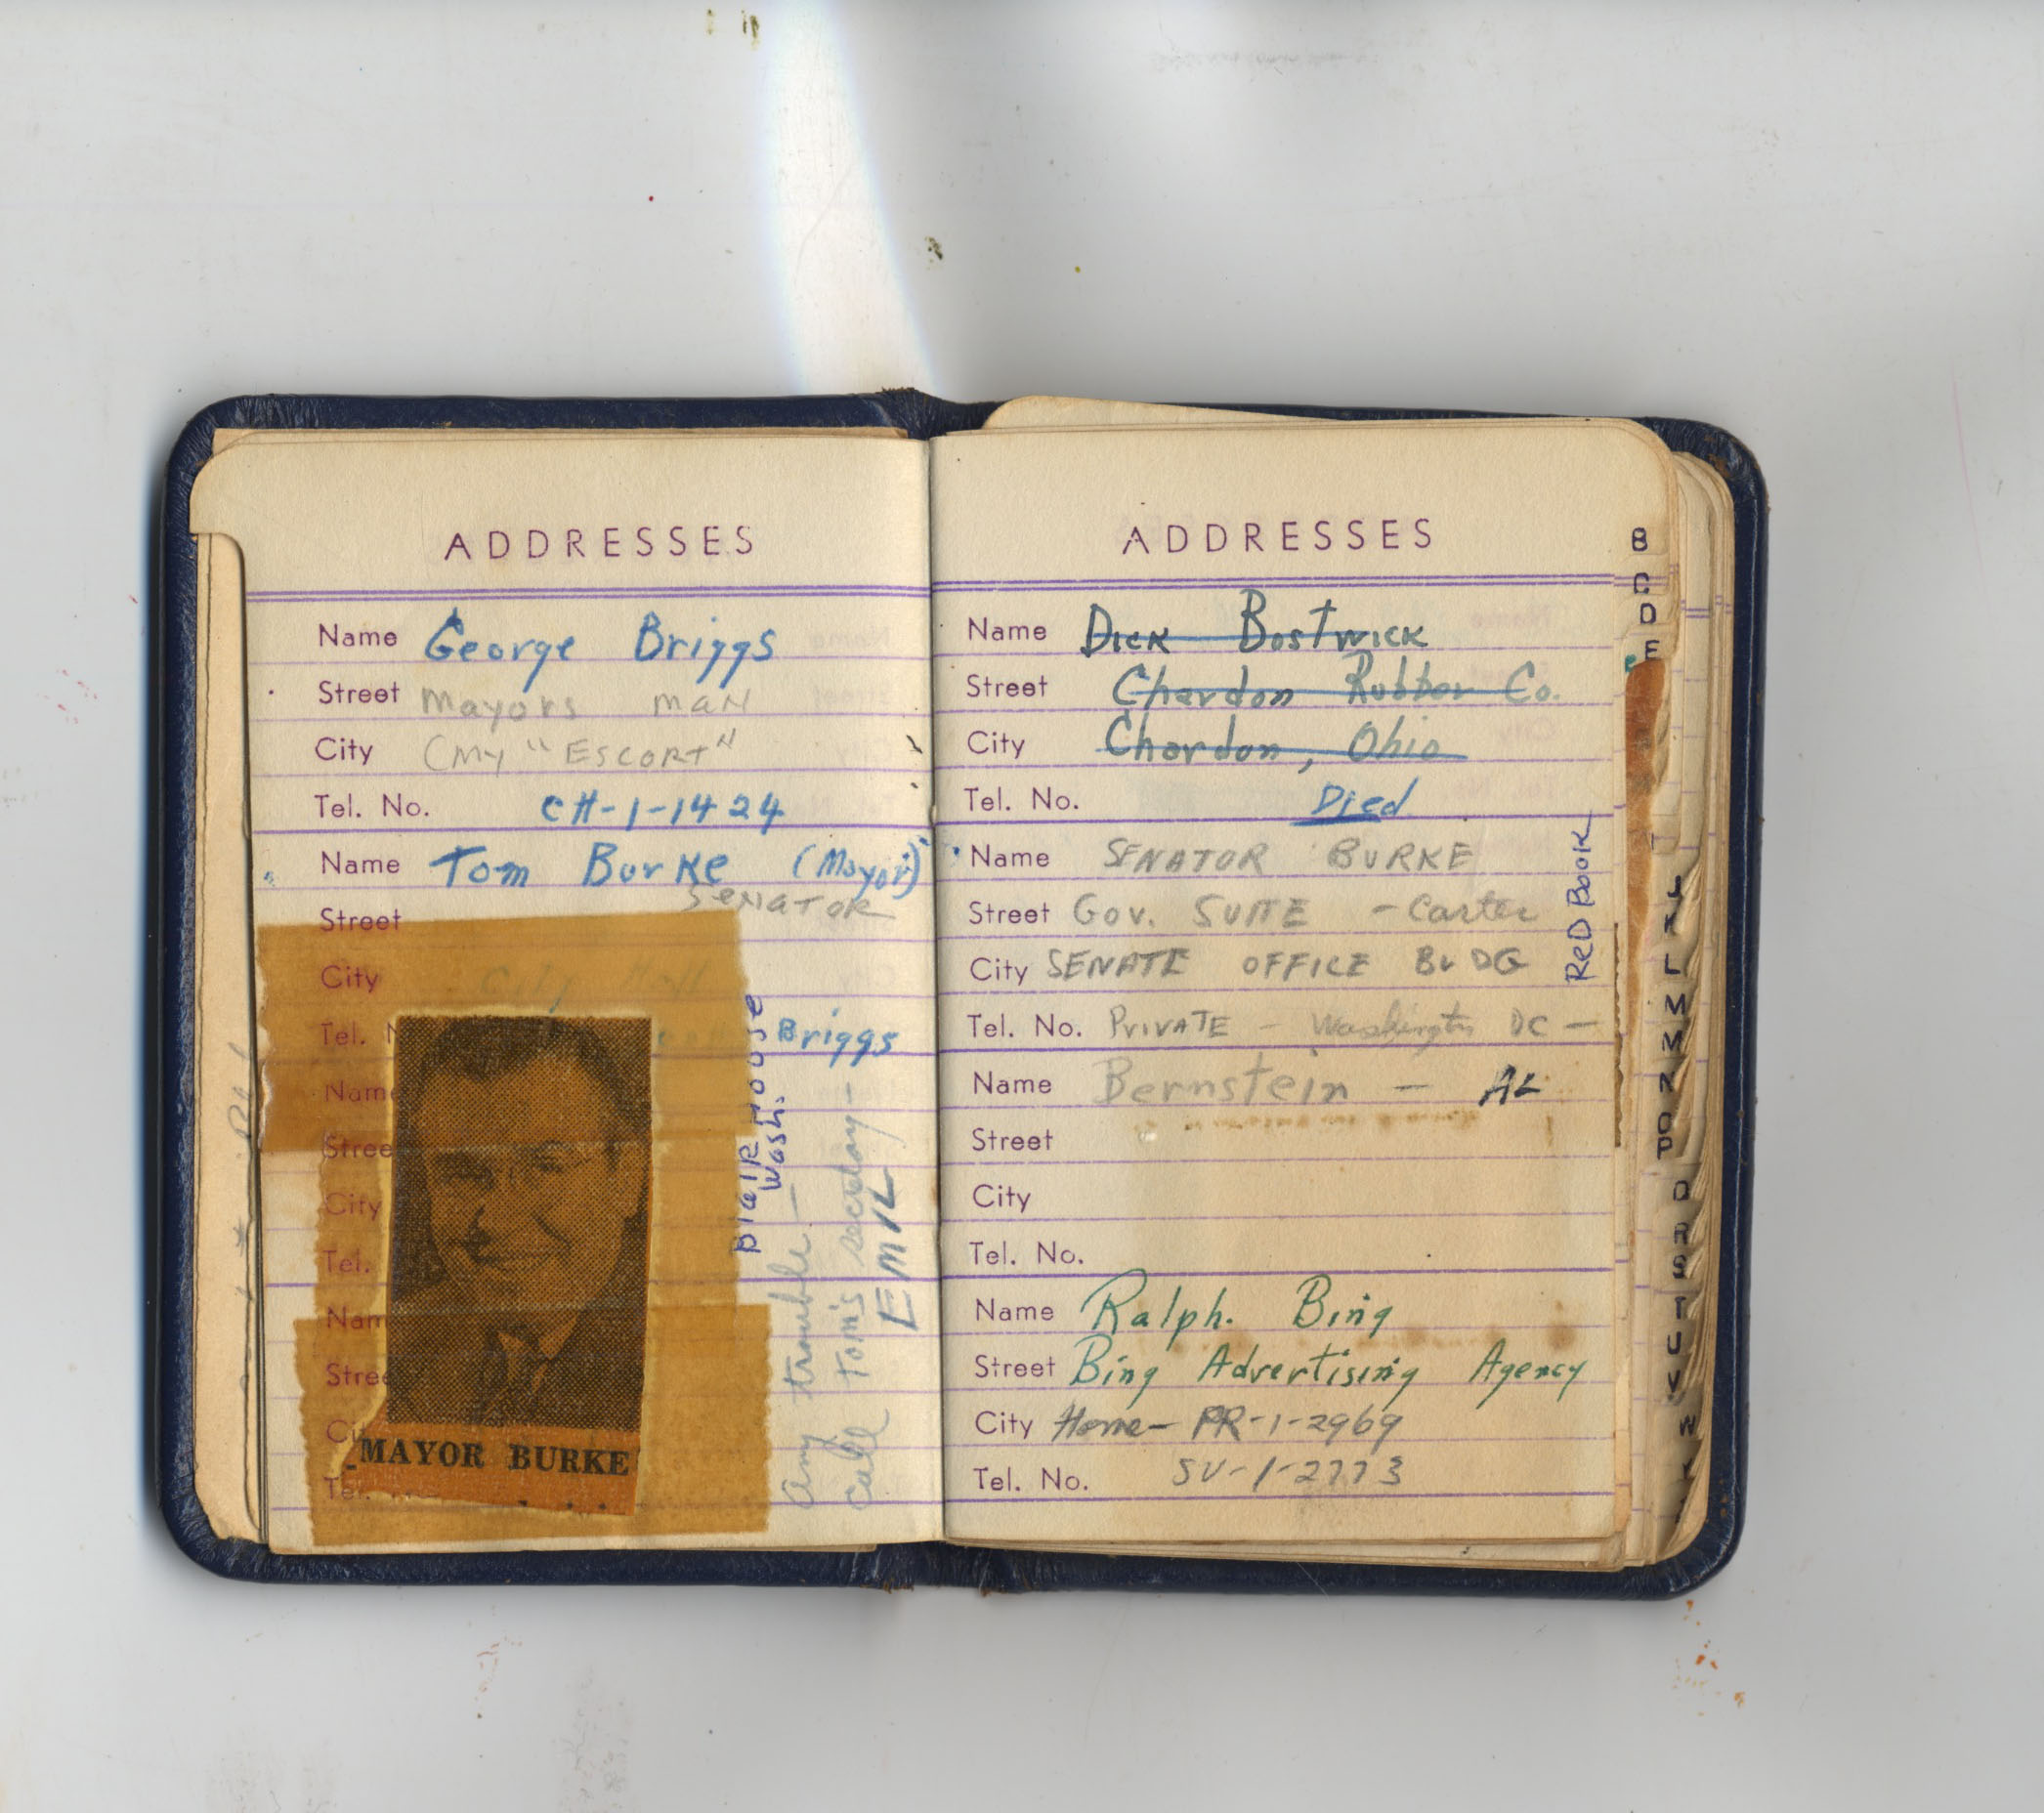 ADDRESSES
Name George Briggs
Street Mayors man
City (My "Escort"
Tel. No. CH-1-1424
Name Tom Burke (Mayor)
Senator
Street
City City Hall
Tel. Briggs
Name
Stree
City
Tel.
Nam
Stree
Ci
MAYOR BURKE
Te
Blair House
Wash.
Any trouble —
Call Tom's secretary —
EMIL
ADDRESSES
Name Dick Bostwick
Street Chardon Rubber Co.
City Chardon, Ohio
Tel. No. Died
Name SENATOR BURKE
Street Gov. SUITE - Carter
City SENATE OFFICE BLDG
Tel. No. PRIVATE - Washington DC —
Red Book
Name Bernstein — AL
Street
City
Tel. No.
Name Ralph. Bing
Street Bing Advertising Agency
City Home- PR-1-2969
Tel. No. SV-1-2773
B
C
D
E
J
K
L
M
M
N
O
P
Q
R
S
T
U
V
W